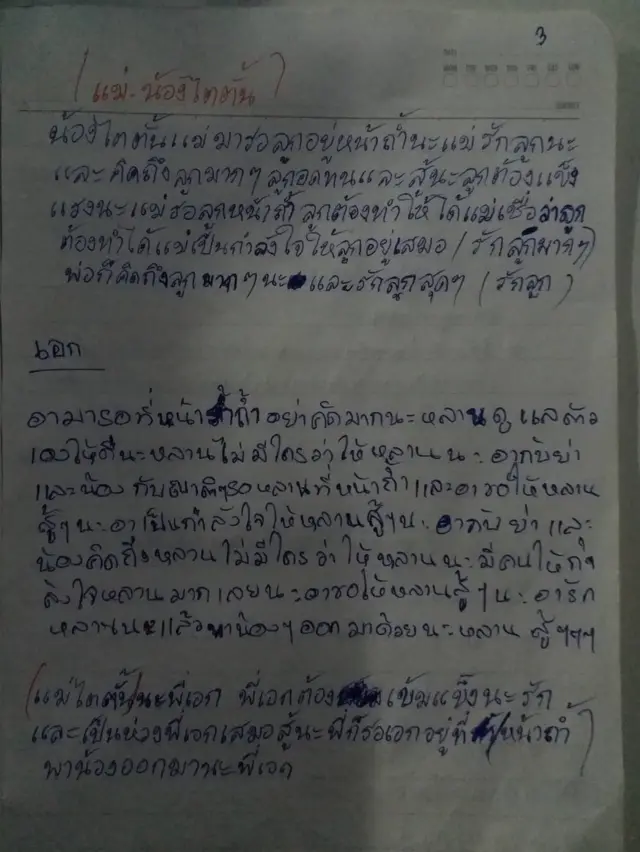 3
(แม่-น้องไตตั้น)
น้องไตตั้นแม่มารอลูกอยู่หน้าถ้ำนะแม่รักลูกนะ
และคิดถึงลูกมากๆลูกอดทนและสู้นะลูกต้องแข็ง
แรงนะแม่รอลูกหน้าถ้ำลูกต้องทำให้ได้แม่เชื่อว่าลูก
ต้องทำได้แม่เป็นกำลังใจให้ลูกอยู่เสมอ(รักลูกมากๆ)
พ่อก็คิดถึงลูกมากๆนะ และรักลูกสุดๆ (รักลูก)
เอก
อามารอที่หน้าถ้ำอย่าคิดมากนะหลานดูแลตัว
เองให้ดีนะหลานไม่มีใครว่าให้หลานนะ อากับย่า
และน้อง กับญาติๆรอหลานที่หน้าถ้ำและอาขอให้หลาน
สู้ๆนะอาเป็นกำลังใจให้หลานสู้ๆนะอากับย่าและ
น้องคิดถึงหลานไม่มีใครว่าให้หลานนะมีคนให้กำ
ลังใจหลานมากเลยนะอาขอให้หลานสู้ๆนะอารัก
หลานนะแล้วพาน้องๆออกมาด้วยนะหลาน สู้ๆๆๆ
(แม่ไตตั้น)นะพี่เอก พี่เอกต้อง เข้มแข็งนะรัก
และเป็นห่วงพี่เอกเสมอสู้นะพี่ก็รอเอกอยู่ที่หน้าถ้ำ)
พาน้องออกมานะพี่เอก